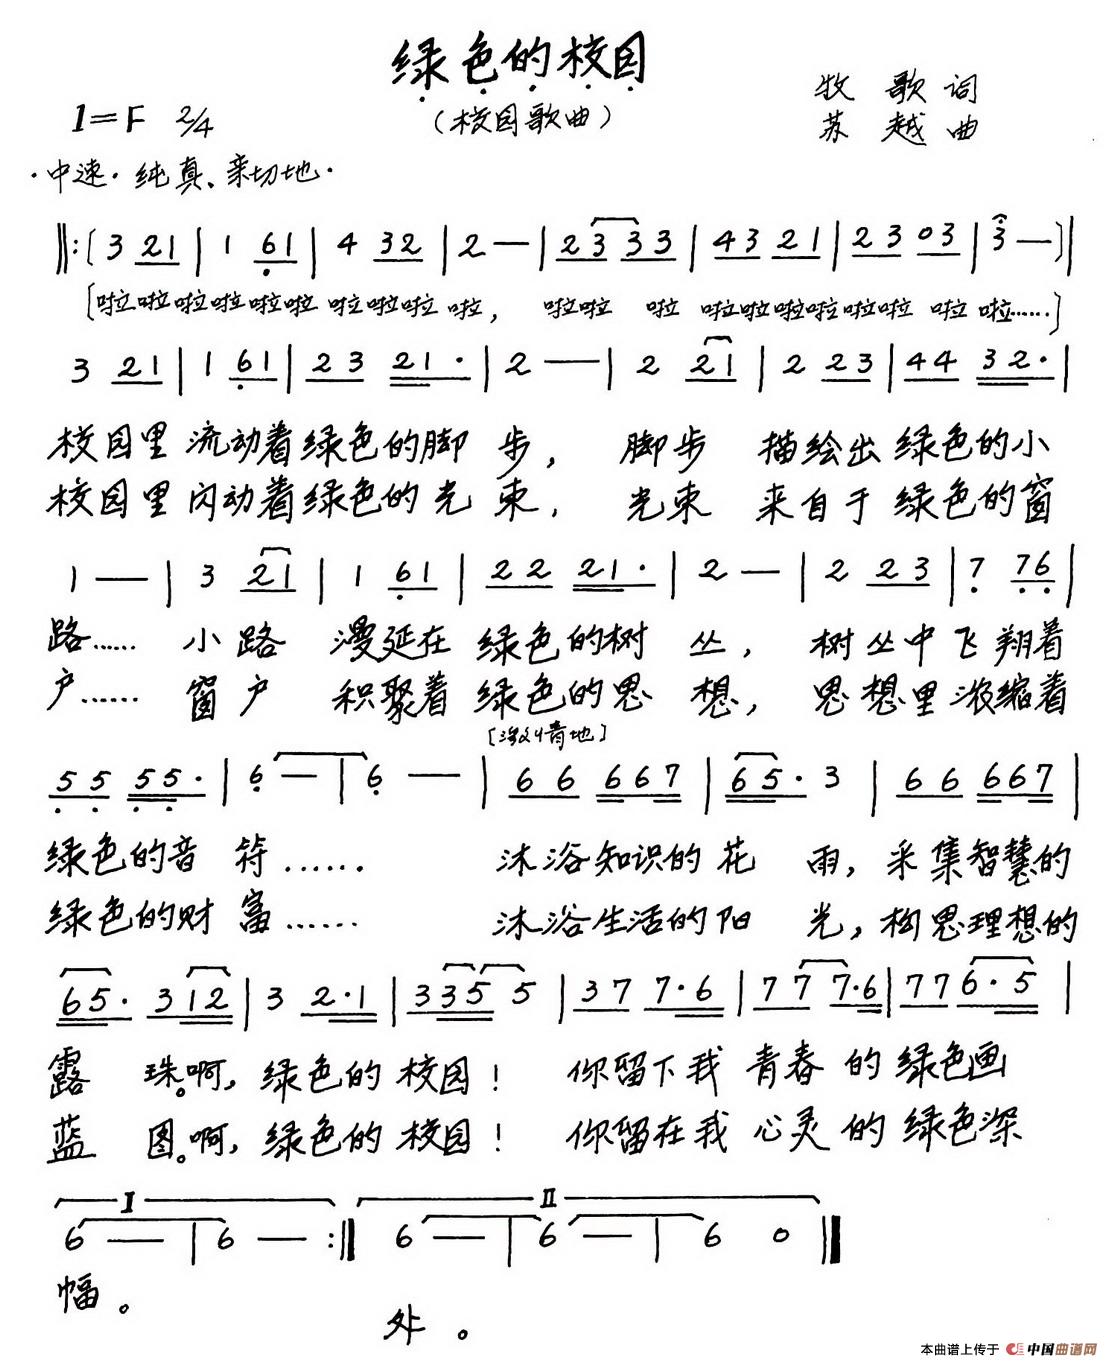 绿色的校园
(校园歌曲)
牧 歌 词
苏 越 曲
1=F 2/4
·中速·纯真、亲切地·
‖:[3 21 | 1 61 | 4 32 | 2 — | 23 33 | 43 21 | 23 03 | 3 — ]‖
[啦啦啦啦啦啦 啦啦啦 啦, 啦啦 啦 啦啦啦啦啦啦 啦 啦……]
3 21 | 1 61 | 23 21· | 2 — | 2 21 | 2 23 | 44 32· |
校园里 流动着绿色的脚 步, 脚步 描绘出 绿色的小
校园里 闪动着绿色的光 束, 光束 来自于 绿色的窗
1 — | 3 21 | 1 61 | 22 21· | 2 — | 2 23 | 7 76 |
路…… 小路 漫延在 绿色的树 丛, 树丛中飞翔着
户…… 窗户 积聚着 绿色的思 想, 思想里浓缩着
[激情地]
55 55· | 6 — | 6 — | 66 667 | 65· 3 | 66 667 |
绿色的音 符…… 沐浴知识的花 雨, 采集智慧的
绿色的财 富…… 沐浴生活的阳 光, 构思理想的
65· 312 | 3 2·1 | 335 5 | 37 7·6 | 77 7·6 | 77 6·5 |
露 珠。啊, 绿色的 校园! 你留下我 青春 的 绿色画
蓝 图。啊, 绿色的 校园! 你留在我 心灵 的 绿色深
I II
6 — | 6 — :‖ 6 — | 6 — | 6 0 ‖
幅。
处。
本曲谱上传于 中国曲谱网